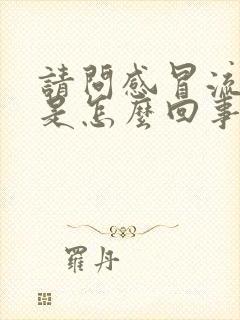 請問感冒流
是怎麼回事
羅丹